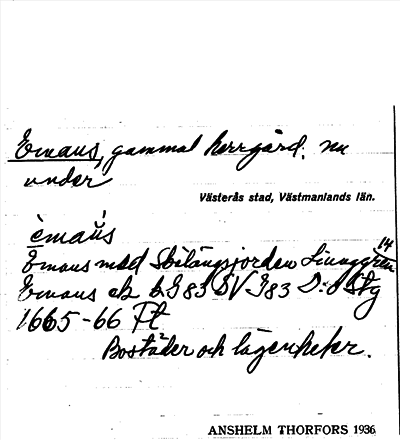 Emaus, gammal herrgård, nu
under
Västerås stad, Västmanlands län.
èmaùs
Emaus med Skilängsjorden
14
Emaus ek b G 83 SV G83 D:o Stg
1665-66 Pl
Bostäder och lägenheter.
ANSHELM THORFORS 1936